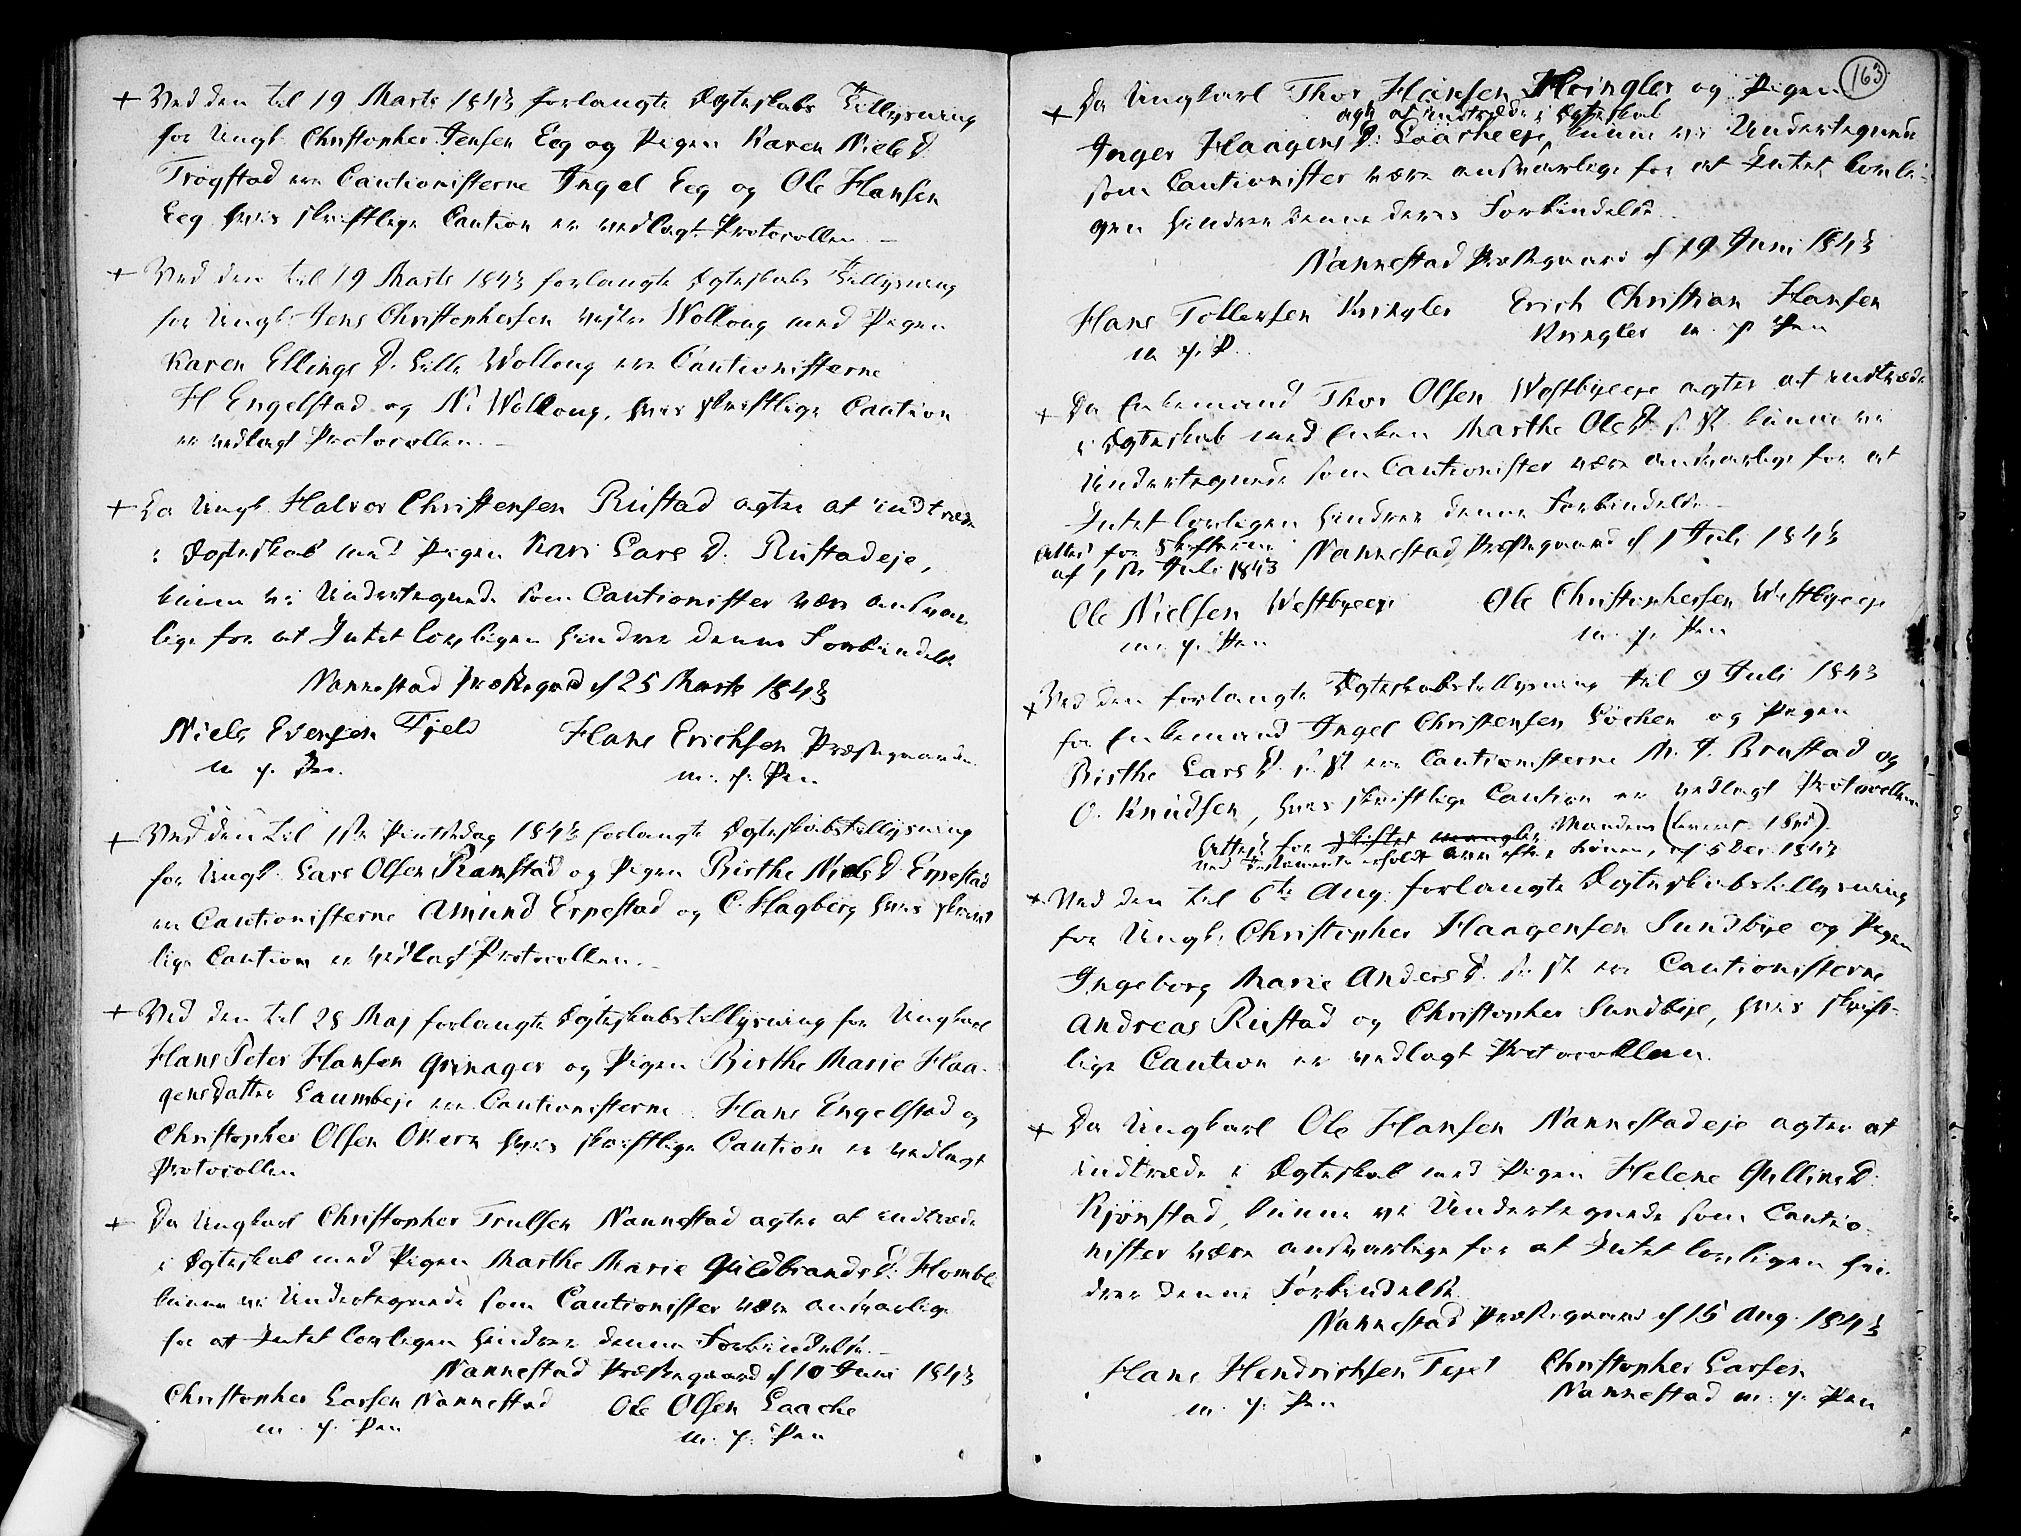 + Ved den til 19 Marts 1843 forlangte Ægteskabs Tillysning
for Ungk. Christopher Jensen Eeg og Pigen Karen Niels D.
Trøgstad ere Cautionisterne Ingel Eeg og Ole Hansen
Eeg hvis skriftlige Caution er vedlagt Protocollen. –
+ Ved den til 19 Marts 1843 forlangte Ægteskabs Tillysning
for Ungk. Jens Christophersen Wollaug med Pigen
Karen Ellings D. Lille Wollaug ere Cautionisterne
H Engelstad og N. Wollaug, hvis skriftlige Caution
er vedlagt Protocollen. –
+ Da Ungk. Halvor Christensen Rustad agter at indtræde
i Ægteskab med Pigen Kari Lars D. Rustadeje,
kunne vi Undertegnede som Cautionister være ansvar-
lige for at Intet lovligen hindrer denne Forbindelse
Nannestad Præstegaard d 25 Marts 1843
Niels Evensen Fjeld Hans Erichsen Præstegaarden
m. p. Pen. m. p. Pen
+ Ved den til 1ste Pintsedag 1843 forlangte Ægteskabstillysning
for Ungk. Lars Olsen Ramstad og Pigen Birthe Niels D. Erpestad
ere Cautionisterne Amund Erpestad og C. Hagberg hvis skrift
lige Caution er vedlagt Protocollen. –
+ Ved den til 28 Maj forlangte Ægteskabstillysning for Ungkarl
Hans Peter Hansen Grinager og Pigen Birthe Marie Haa-
gensdatter Laumbeje ere Cautionisterne Hans Engelstad og
Christopher Olsen Okern hvis skriftlige Caution er vedlagt
Protocollen
+ Da Ungkarl Christopher Trulsen Nannestad agter at indtræde
i Ægteskab med Pigen Marthe Marie Guldbrands D. Homble
kunne vi Undertegnede som Cautionister være ansvarlige
for at Intet lovligen hindrer denne Forbindelse. –
Nannestad Præstegaard d 10 Juni 1843
Christopher Larsen Nannestad Ole Olsen Laache
m. p. Pen m. p. Pen
163
+ Da Ungkarl Thor Hansen Kringler og Pigen
agte at indtræde i Ægteskab
Inger Haagens D. Laacheeje, kunne vi Undertegnede
som Cautionister være ansvarlige for at Intet lovli-
gen hindrer denne deres Forbindelse.
Nannestad Præstegaard d 19 Juni 1843
Hans Tollersen Kringler Erich Christian Hansen
m. p. P. Kringler m. p. Pen
+ Da Enkemand Thor Olsen Westbyeeje agter at indtræde
i Ægteskab med Enken Marthe Ole D. s. St. kunne vi
Undertegnede som Cautionister være ansvarlige for at
Intet lovligen hindrer denne Forbindelse –
Attest for Skifterne Nannestad Præstegaard d 1 Juli 1843
af 1ste Juli 1843
Ole Nielsen Westbyeeje Ole Christophersen Westbyeeje
m. p. Pen m. p. Pen
+ Ved den forlangte Ægteskabstillysning til 9 Juli 1843
for Enkemand Ingel Christensen Løchen og Pigen
Birthe Lars D. s. St. ere Cautionisterne M. D. Brustad og
O. Knudsen, hvis skriftlige Caution er vedlagt Protocollen
Attest for Skiftet mangler
1843
+ Ved den til 6te Aug. forlangte Ægteskabstillysning
for Ungk. Christopher Haagensen Sundbye og Pigen
Ingeborg Marie Anders D. s. St. ere Cautionisterne
Andreas Rustad og Christopher Sundbye, hvis skrift-
lige Caution er vedlagt Protocollen.
+ Da Ungkarl Ole Hansen Nannestadeje agter at
indtræde i Ægteskab med Pigen Helene Gulline D.
Kjønstad, kunne vi Undertegnede som Cautio-
nister være ansvarlige for at Intet lovligen hin-
drer denne Forbindelse.
Nannestad Præstegaard d 15 Aug. 1843
Hans Hendrichsen Tejet Christopher Larsen
m. p. Pen Nannestad m. p. Pen